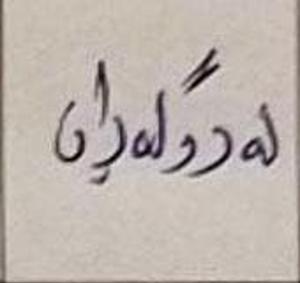 لەدوگلەڕان